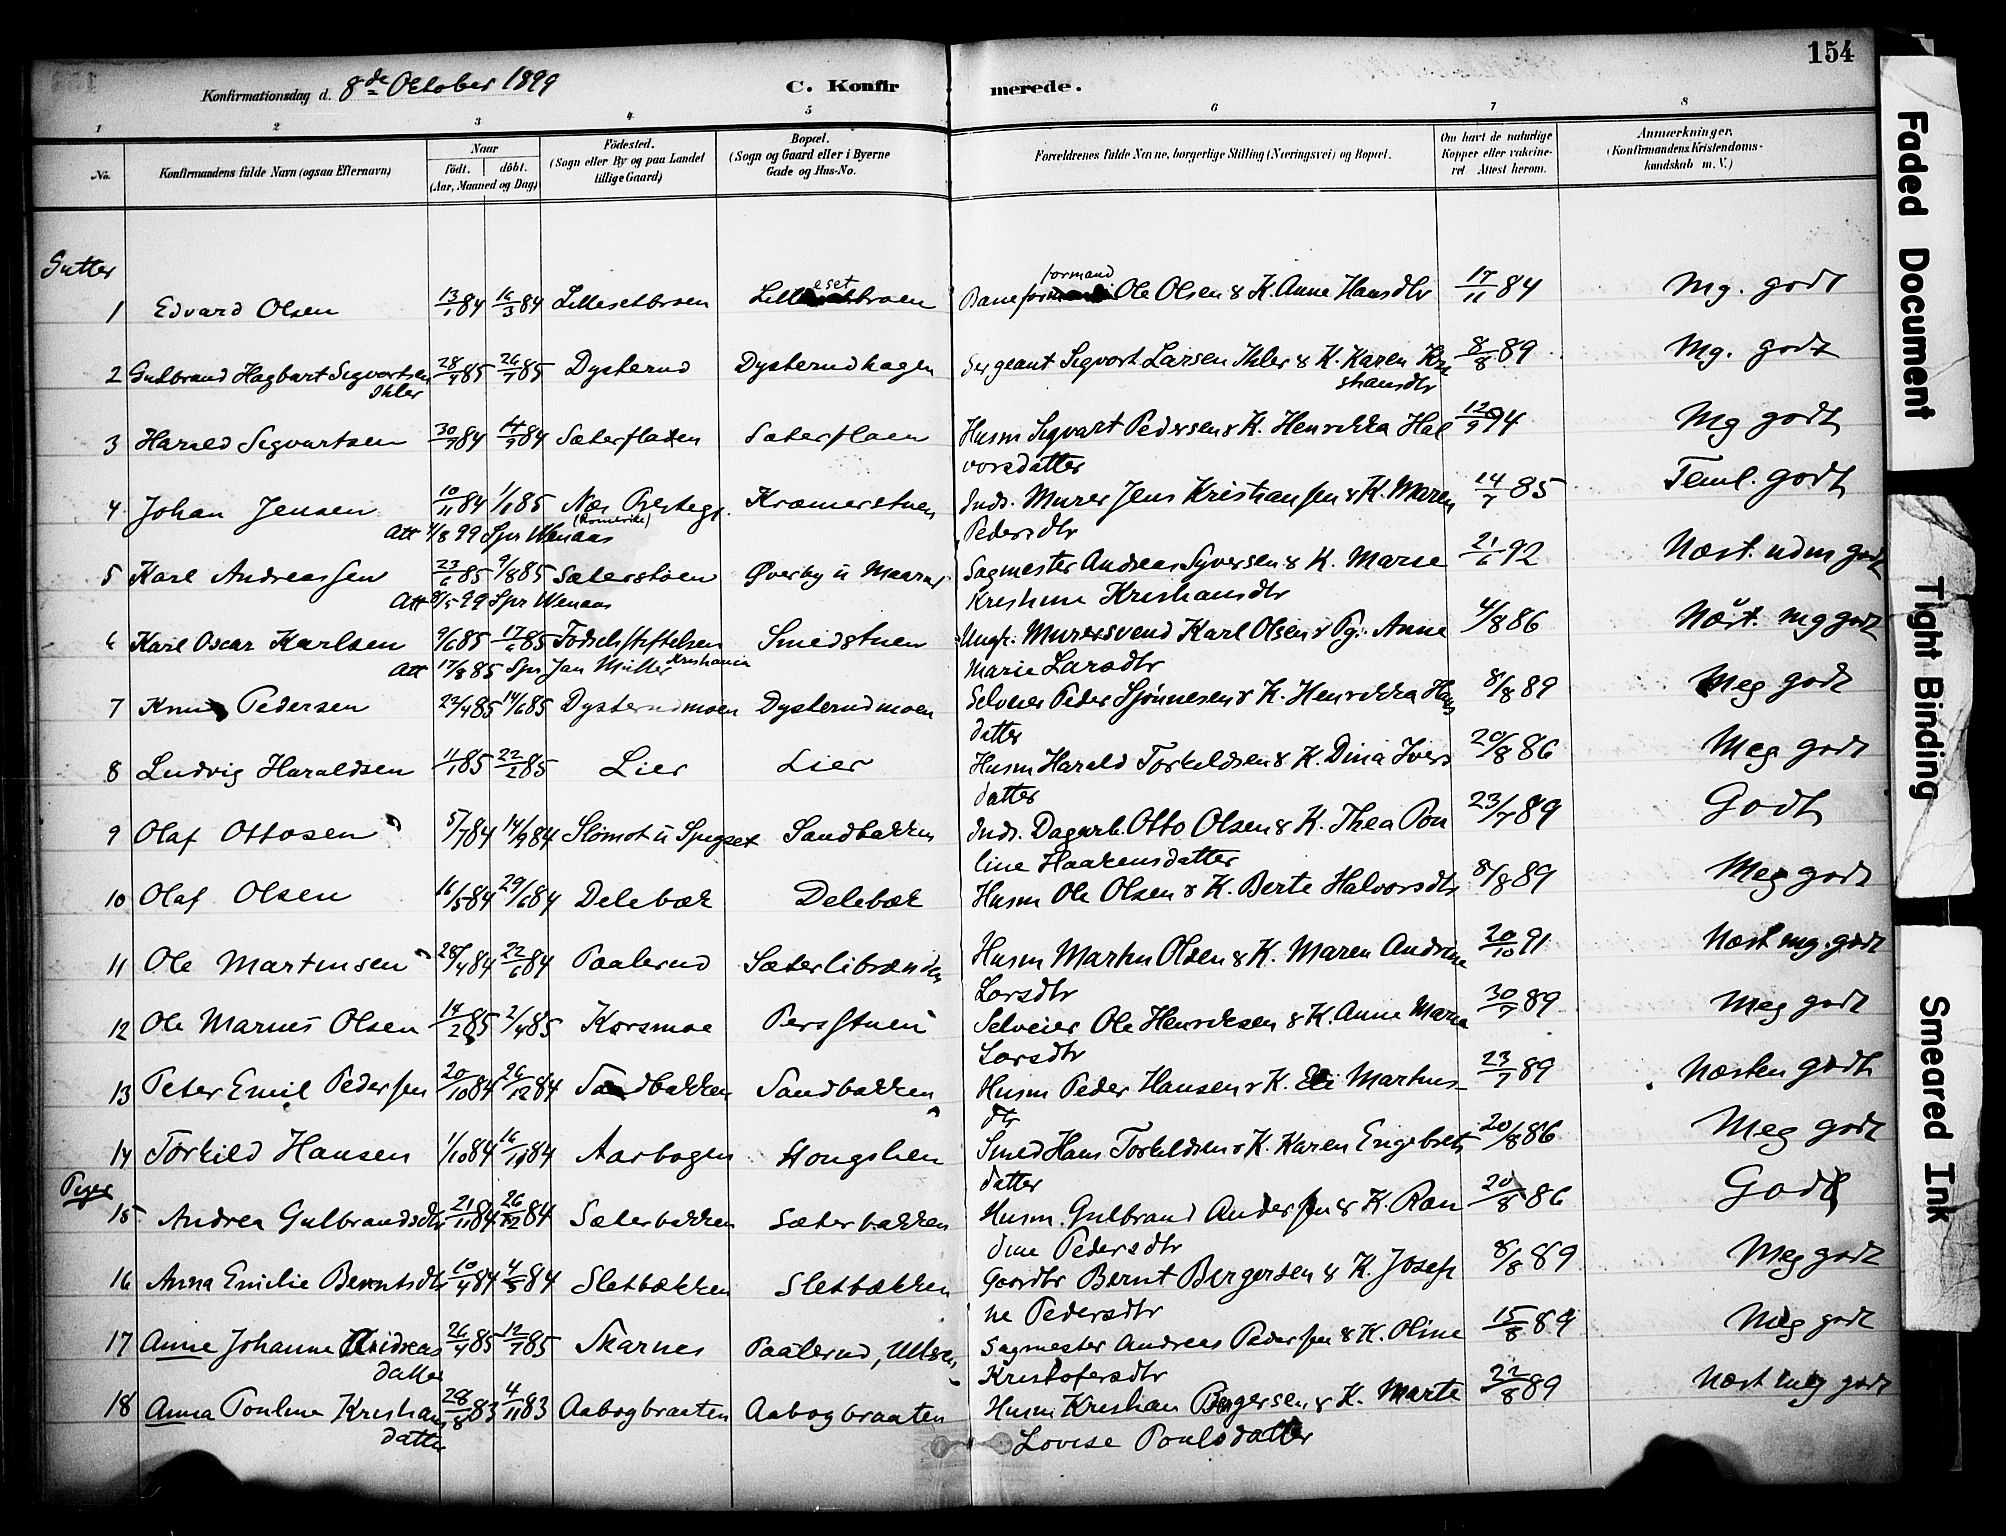 154
Konfirmationsdag d. 8de October 1899
C. Konfirmerede.
1 2 3 4 5 6 7 8
No.
Konfirmandens fulde Navn (ogsaa Efternavn)
Naar födt. döbt. (Aar, Maaned og Dag)
Födested. (Sogn eller By og paa Landet tillige Gaard)
Bopæl. (Sogn og Gaard eller i Byerne Gade og Hus-No.
Forældrenes fulde Navne, borgerlige Stilling (Næringsvei) og Bopæl.
Om havt de naturlige Kopper eller vakcineret Attest herom.
Anmærkninger. (Konfirmandens Kristendomskundskab m. V.)
Gutter
1 Edvard Olsen 13/1 84 16/3 84 Lillesetbroen Lillesetbroen Baneformand Ole Olsen & K. Anne Hansdtr 17/11 84 Mg. godt
2 Gulbrand Hagbart Sigvartsen Ihler 28/4 85 26/7 85 Dysterud Dysterudhagen Sergeant Sigvart Larsen Ihler & K. Karen Kristiansdtr 8/8 89 Mg. godt
3 Harald Sigvartsen 30/7 84 14/9 84 Sæterflaten Sæterflaen Husm Sigvart Pedersen & K. Henrikka Hal
vorsdatter 12/9 94 Mg godt
4 Johan Jensen 10/11 84 1/1 85 Nes Prestegj. (Romerike) Kræmerstuen Inds. Murer Jens Kristiansen & K. Maren 14/7 85 Teml. godt
Att 4/8 99 Spr Wenaas Pedersdtr
5 Karl Andreassen 23/6 85 9/8 85 Sæterstøen Øverby u Maarud Sagmester Andreas Syversen & K. Marie 21/6 92 Næst. udm godt
Att 8/5 99 Spr Wenaas Kristine Kristiansdtr
6 Karl Oscar Karlsen 9/6 85 17/6 85 Födselsstiftelsen Kristiania Smedstuen Ungk. Murersvend Karl Olsen & Pg. Anne 4/8 86 Næst. mg godt
Att 17/8 85 Spr Jan Müller Marie Larsdtr
7 Knut Pedersen 22/4 85 14/6 85 Dysterudmoen Dysterudmoen Selveier Peder Sjønnesen & K. Henrikka Hans
datter 8/8 89 Meg godt
8 Ludvig Haraldsen 11/1 85 22/2 85 Lier Lier Husm Harald Torkildsen & K. Dina Ivers
datter 20/8 86 Meg godt
9 Olaf Ottosen 5/7 84 14/9 84 Slomot u Spigset Sandbakken Inds. Dagarb. Otto Olsen & K. Thea Pou
line Haakensdatter 23/7 89 Godt
10 Olaf Olsen 16/5 84 29/6 84 Delebæk Delebæk Husm Ole Olsen & K. Berte Halvorsdtr 8/8 89 Meg godt
11 Ole Martinsen 28/4 84 22/6 84 Paalerud Sæterlibraaten Husm Martin Olsen & K. Maren Andrine
Larsdtr 20/10 91 Næst mg. godt
12 Ole Marius Olsen 14/2 85 2/4 85 Korsmoe Persstuen Selveier Ole Henriksen & K. Anne Maria
Larsdtr 30/7 89 Meg godt
13 Peter Emil Pedersen 20/10 84 26/12 84 Sandbakken Sandbakken Husm Peder Hansen & K. Eli Martins-
dtr 23/7 89 Næsten godt
14 Torkild Hansen 1/10 84 16/11 84 Aarbogen Stongslien Smed Hans Torkildsen & K. Karen Engebrets
datter 20/8 86 Meg godt
Piger
15 Andrea Gulbrandsdtr 21/11 84 26/12 84 Sæterbakken Sæterbakken Husm. Gulbrand Andersen & K. Ran
dine Pedersdtr 20/8 86 Godt
16 Anna Emilie Berntsdtr 10/4 84 4/5 84 Sletbækken Sletbækken Gaardbr Bernt Bergersen & K. Josefi
ne Pedersdtr 8/8 89 Meg godt
17 Anne Johanne Andreas
datter 26/4 85 12/7 85 Skarnes Paalerud, Ullern Sagmester Andreas Pedersen & K. Oline
Kristofersdtr 15/8 89 Meg godt
18 Anna Pouline Kristians
datter 28/8 83 4/11 83 Aabogbraaten Aabogbraaten Husm Kristian Bergersen & K. Marte
Lovise Poulsdatter 22/8 89 Næst meg godt
Faded Document
Tight Binding
Smeared Ink